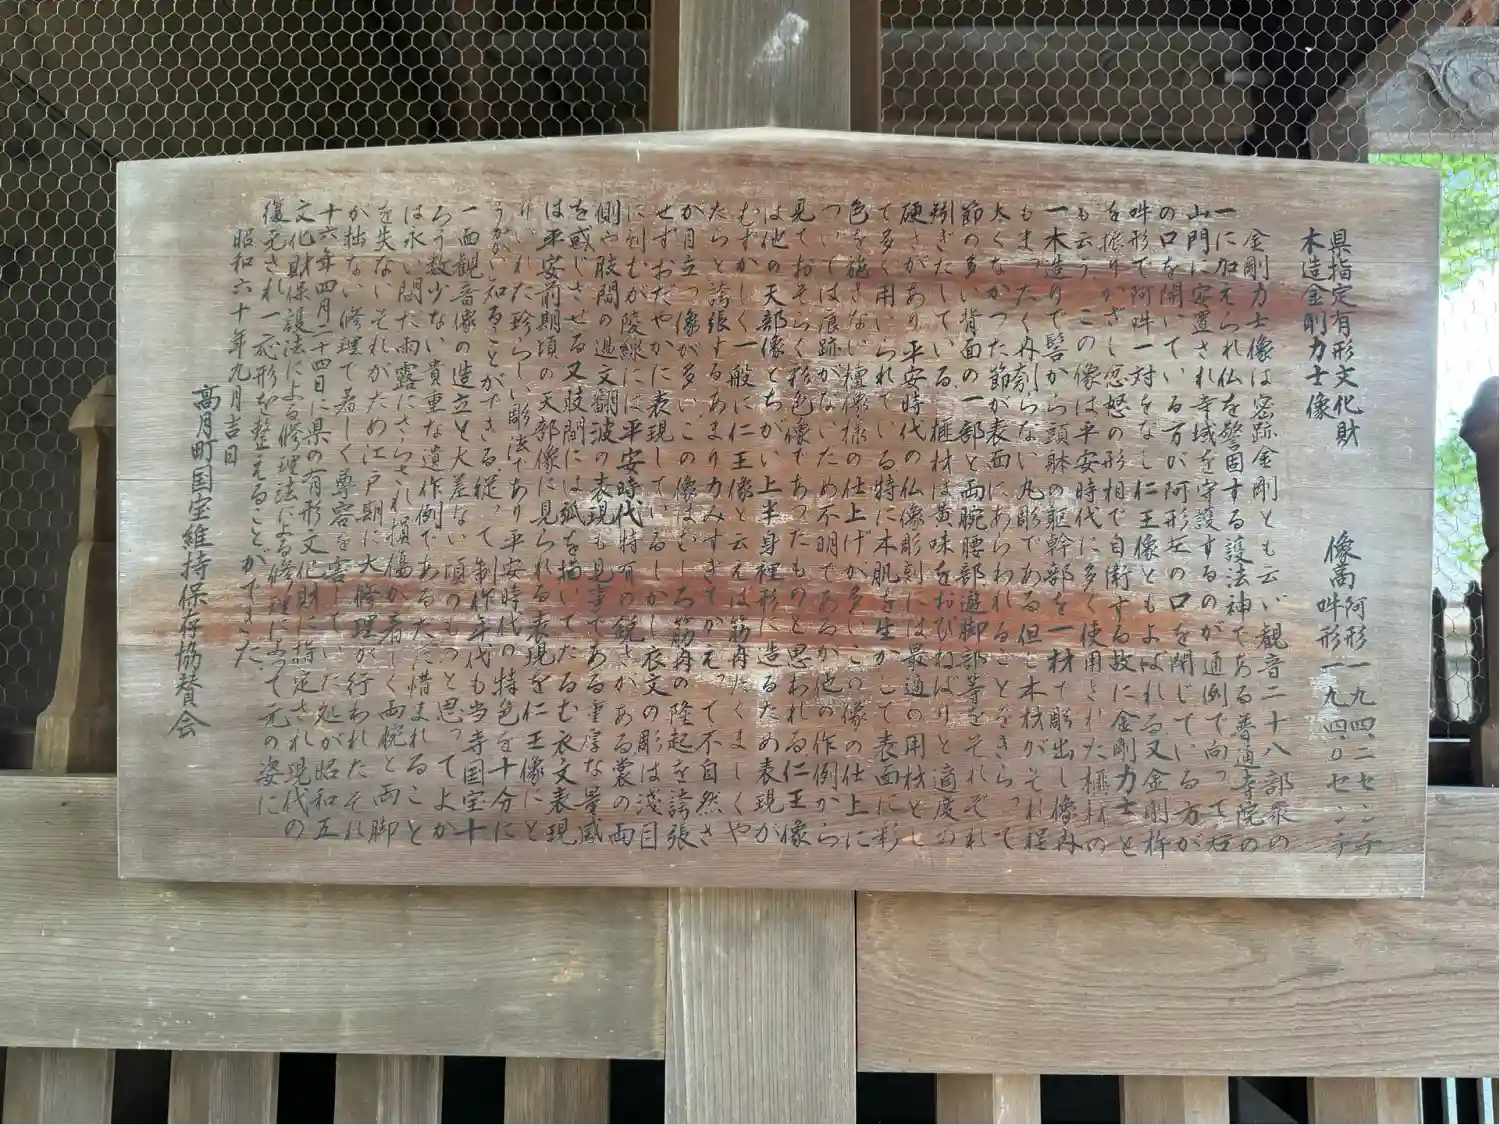 県指定有形文化財
木造金剛力士像
像高 阿形 一九四.二センチ
吽形 一九四.〇センチ
金剛力士像は密跡金剛とも云い観音二十八部衆の
一に加えられ仏を警固する護法神である普通寺院の
山門に安置され寺域を守護するのが通例で向って右
の口を開いている方が阿形左の口を閉じている方が
吽形で阿吽一対をなし仁王像ともよばれる又金剛杵
を振りかざし忿怒の形相で自衛する故に金剛力士と
も云う この像は平安時代に多く使用された榧材の
一木造りで髻から頭躰の躯幹部を一材で彫出し像内
もまったく内刳らない丸彫である但し木材がそれ程
太くなかった節が表面にあらわれることをきらって
節の多い背面の一部と両腕腰部遊脚部等をそれぞれ
矧ぎたしている 榧材は黄味をおびねばりと適度の
硬さがあり平安時代の仏像彫刻には最適の用材とし
て多く用いられている特に木肌を生かして表面に彩
色を施さない檀像様の仕上げが多いこの像の仕上に
ついては痕跡がないため不明であるが他の作例から
見ておそらく彩色像であったものと思われる仁王像
は他の天部像とちがい上半身裸形に造るため表現が
むずかしく一般に仁王像と云えば筋肉たくましくや
たらと誇張するあまり力みすぎてかえって不自然さ
が目立つ像が多いこの像はむしろ筋肉の隆起を誇張
せずおだやかに表現しているしかし衣文の彫は浅目
に刻むが稜線には平安時代特有の鋭さがある裳の両
側や肢間の過文翻波の表現も見事である重厚な量感
を感じさせる又肢間には弧を描いてたるむ衣文表現
は平安前期頃の天部像に見られる表現を仁王像にと
りいれた珍らしい彫法であり平安時代の特色を十分に
うかがい知ることができる従って制作年代も当寺国宝十
一面観音像の造立と大差ない頃のものと思ってよか
ろう数少ない貴重な遺作例であるただ惜まれること
は永い間た雨露にさらされ損傷が著しく両椀と両脚
を失ないそれがため江戸期に大修理が行われたそれ
が拙ない修理で著しく尊容を害していた処が昭和五
十六年四月二十四日に県の有形文化財に指定され現代の
文化財保護法による修理法による修理によって元の姿に
復元され一応形を整えることができた
昭和六十年九月吉日
高月町国宝維持保存協賛会